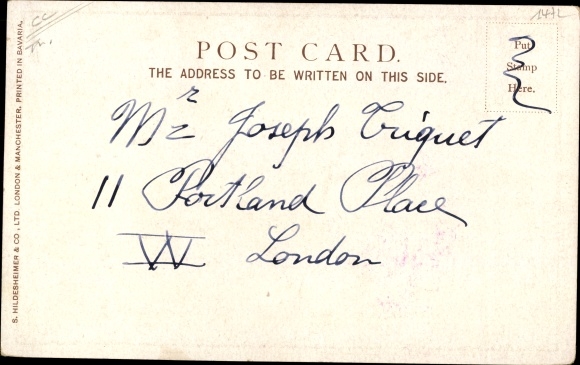 CC
POST CARD.
THE ADDRESS TO BE WRITTEN ON THIS SIDE.
Put
Stamp
Here.
Mr Joseph Triquet
11 Portland Place
W London
S. HILDESHEIMER & CO., LTD. LONDON & MANCHESTER. PRINTED IN BAVARIA.